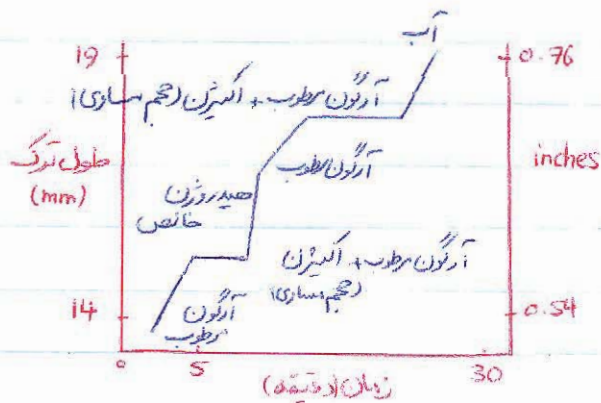 آب
19
0.76
آرگون مرطوب + اکسیژن (حجم مساوی)
طول ترک
(mm)
آرگون مرطوب
inches
هیدروژن
خالص
آرگون مرطوب + اکسیژن
(حجم مساوی)
14
آرگون
مرطوب
0.54
0
5
30
زمان (دقیقه)